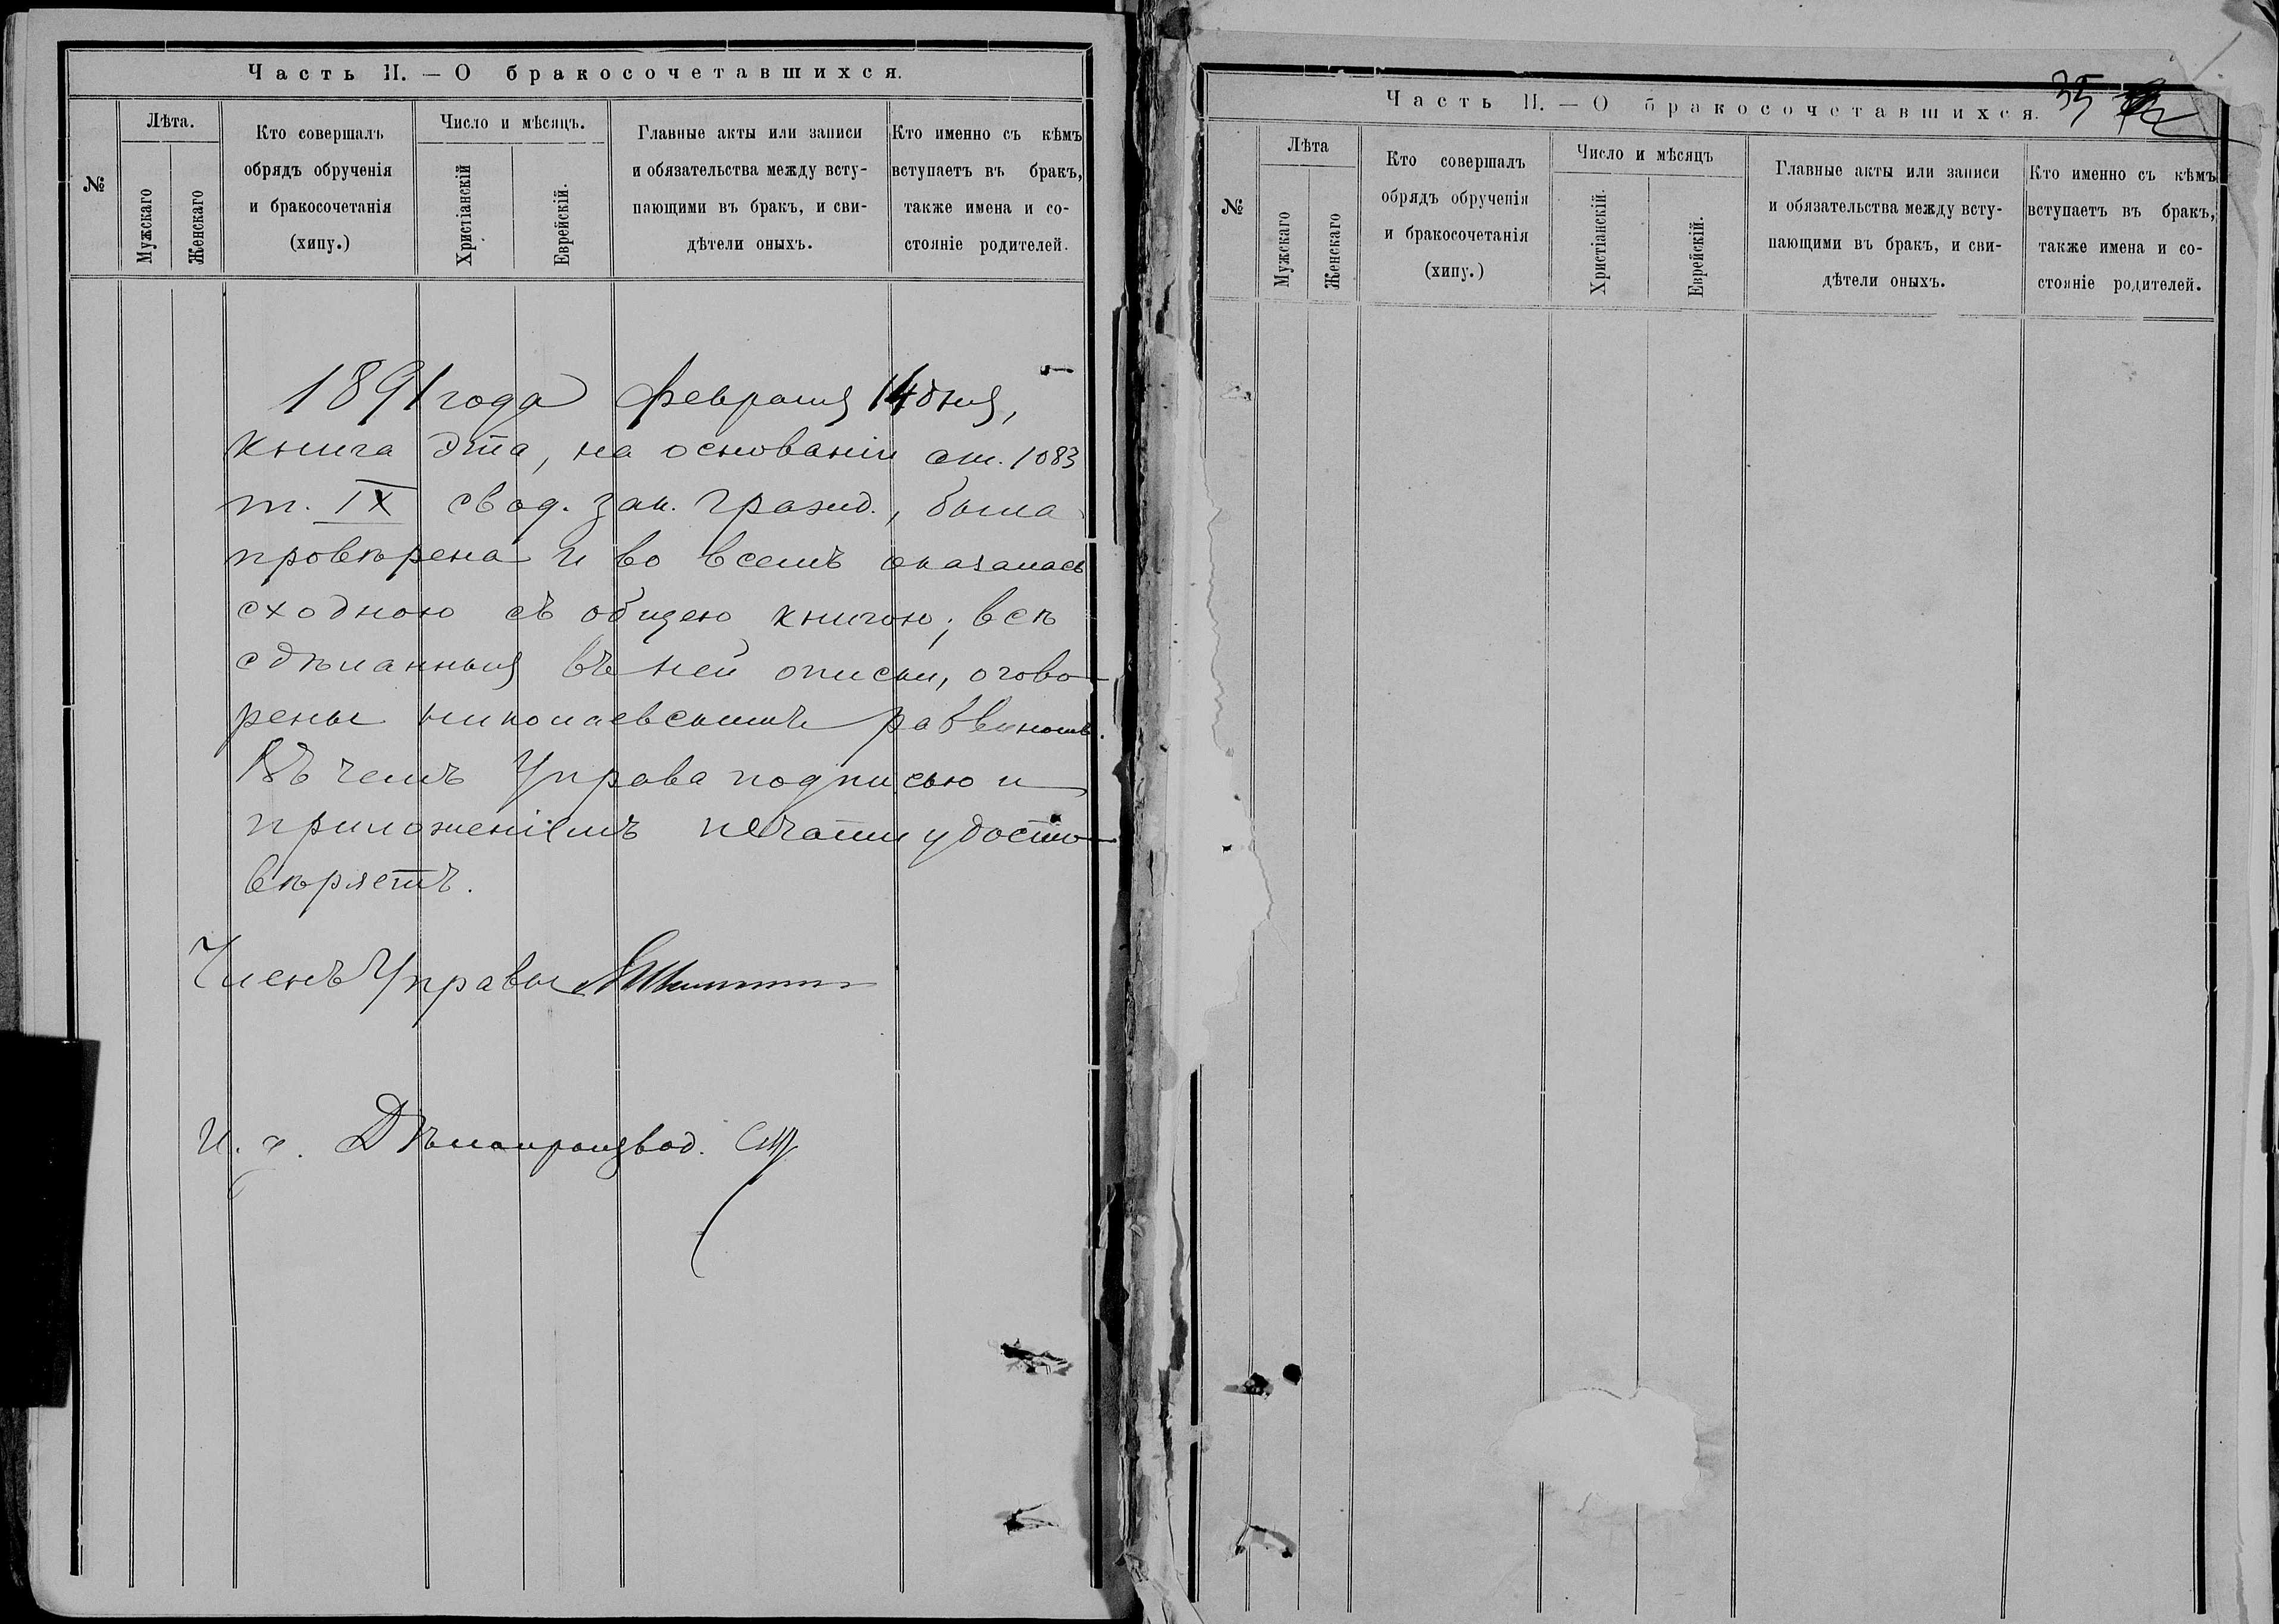 Часть II. — О бракосочетавшихся.
№
Лѣта.
Мужскаго
Женскаго
Кто совершалъ
обрядъ обрученія
и бракосочетанія
(хипу.)
Число и мѣсяцъ.
Христіанскій
Еврейскій.
Главные акты или записи
и обязательства между всту-
пающими въ бракъ, и сви-
дѣтели оныхъ.
Кто именно съ кѣмъ
вступаетъ въ бракъ,
также имена и со-
стояніе родителей.
1891 года февраля 14 дня,
книга эта, на основаніи ст. 1083
т. IX свод. зак. гражд., была
провѣрена и во всемъ оказалась
сходною съ общею книгою; всѣ
сдѣланныя въ ней описки, огово-
рены николаевскимъ раввиномъ.
Въ чемъ Управа подписью и
приложеніемъ печати удосто-
вѣряетъ.
Членъ Управы
И. д. Дѣлопроизвод.
35
Часть II. — О бракосочетавшихся.
№
Лѣта
Мужскаго
Женскаго
Кто совершалъ
обрядъ обрученія
и бракосочетанія
(хипу.)
Число и мѣсяцъ
Христіанскій.
Еврейскій.
Главные акты или записи
и обязательства между всту-
пающими въ бракъ, и сви-
дѣтели оныхъ.
Кто именно съ кѣмъ
вступаетъ въ бракъ,
также имена и со-
стояніе родителей.